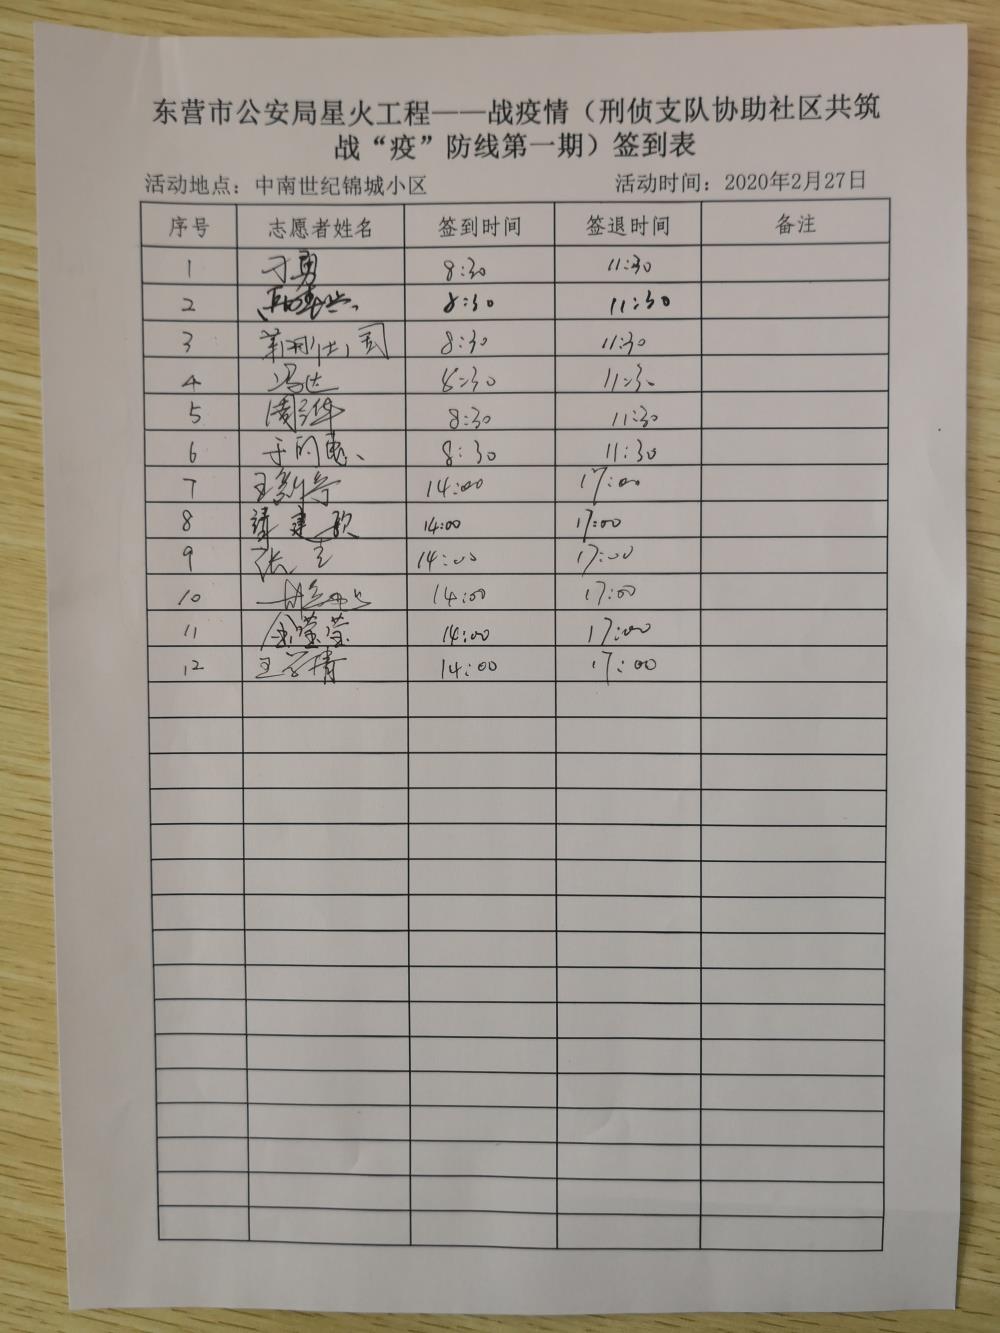 东营市公安局星火工程——战疫情（刑侦支队协助社区共筑
战“疫”防线第一期）签到表
活动地点：中南世纪锦城小区 活动时间：2020年2月27日
序号 志愿者姓名 签到时间 签退时间 备注
1 于勇 8:30 11:30
2 8:30 11:30
3 8:30 11:30
4 冯达 8:30 11:30
5 8:30 11:30
6 8:30 11:30
7 14:00 17:00
8 14:00 17:00
9 张 14:00 17:00
10 14:00 17:00
11 金莹莹 14:00 17:00
12 王学倩 14:00 17:00